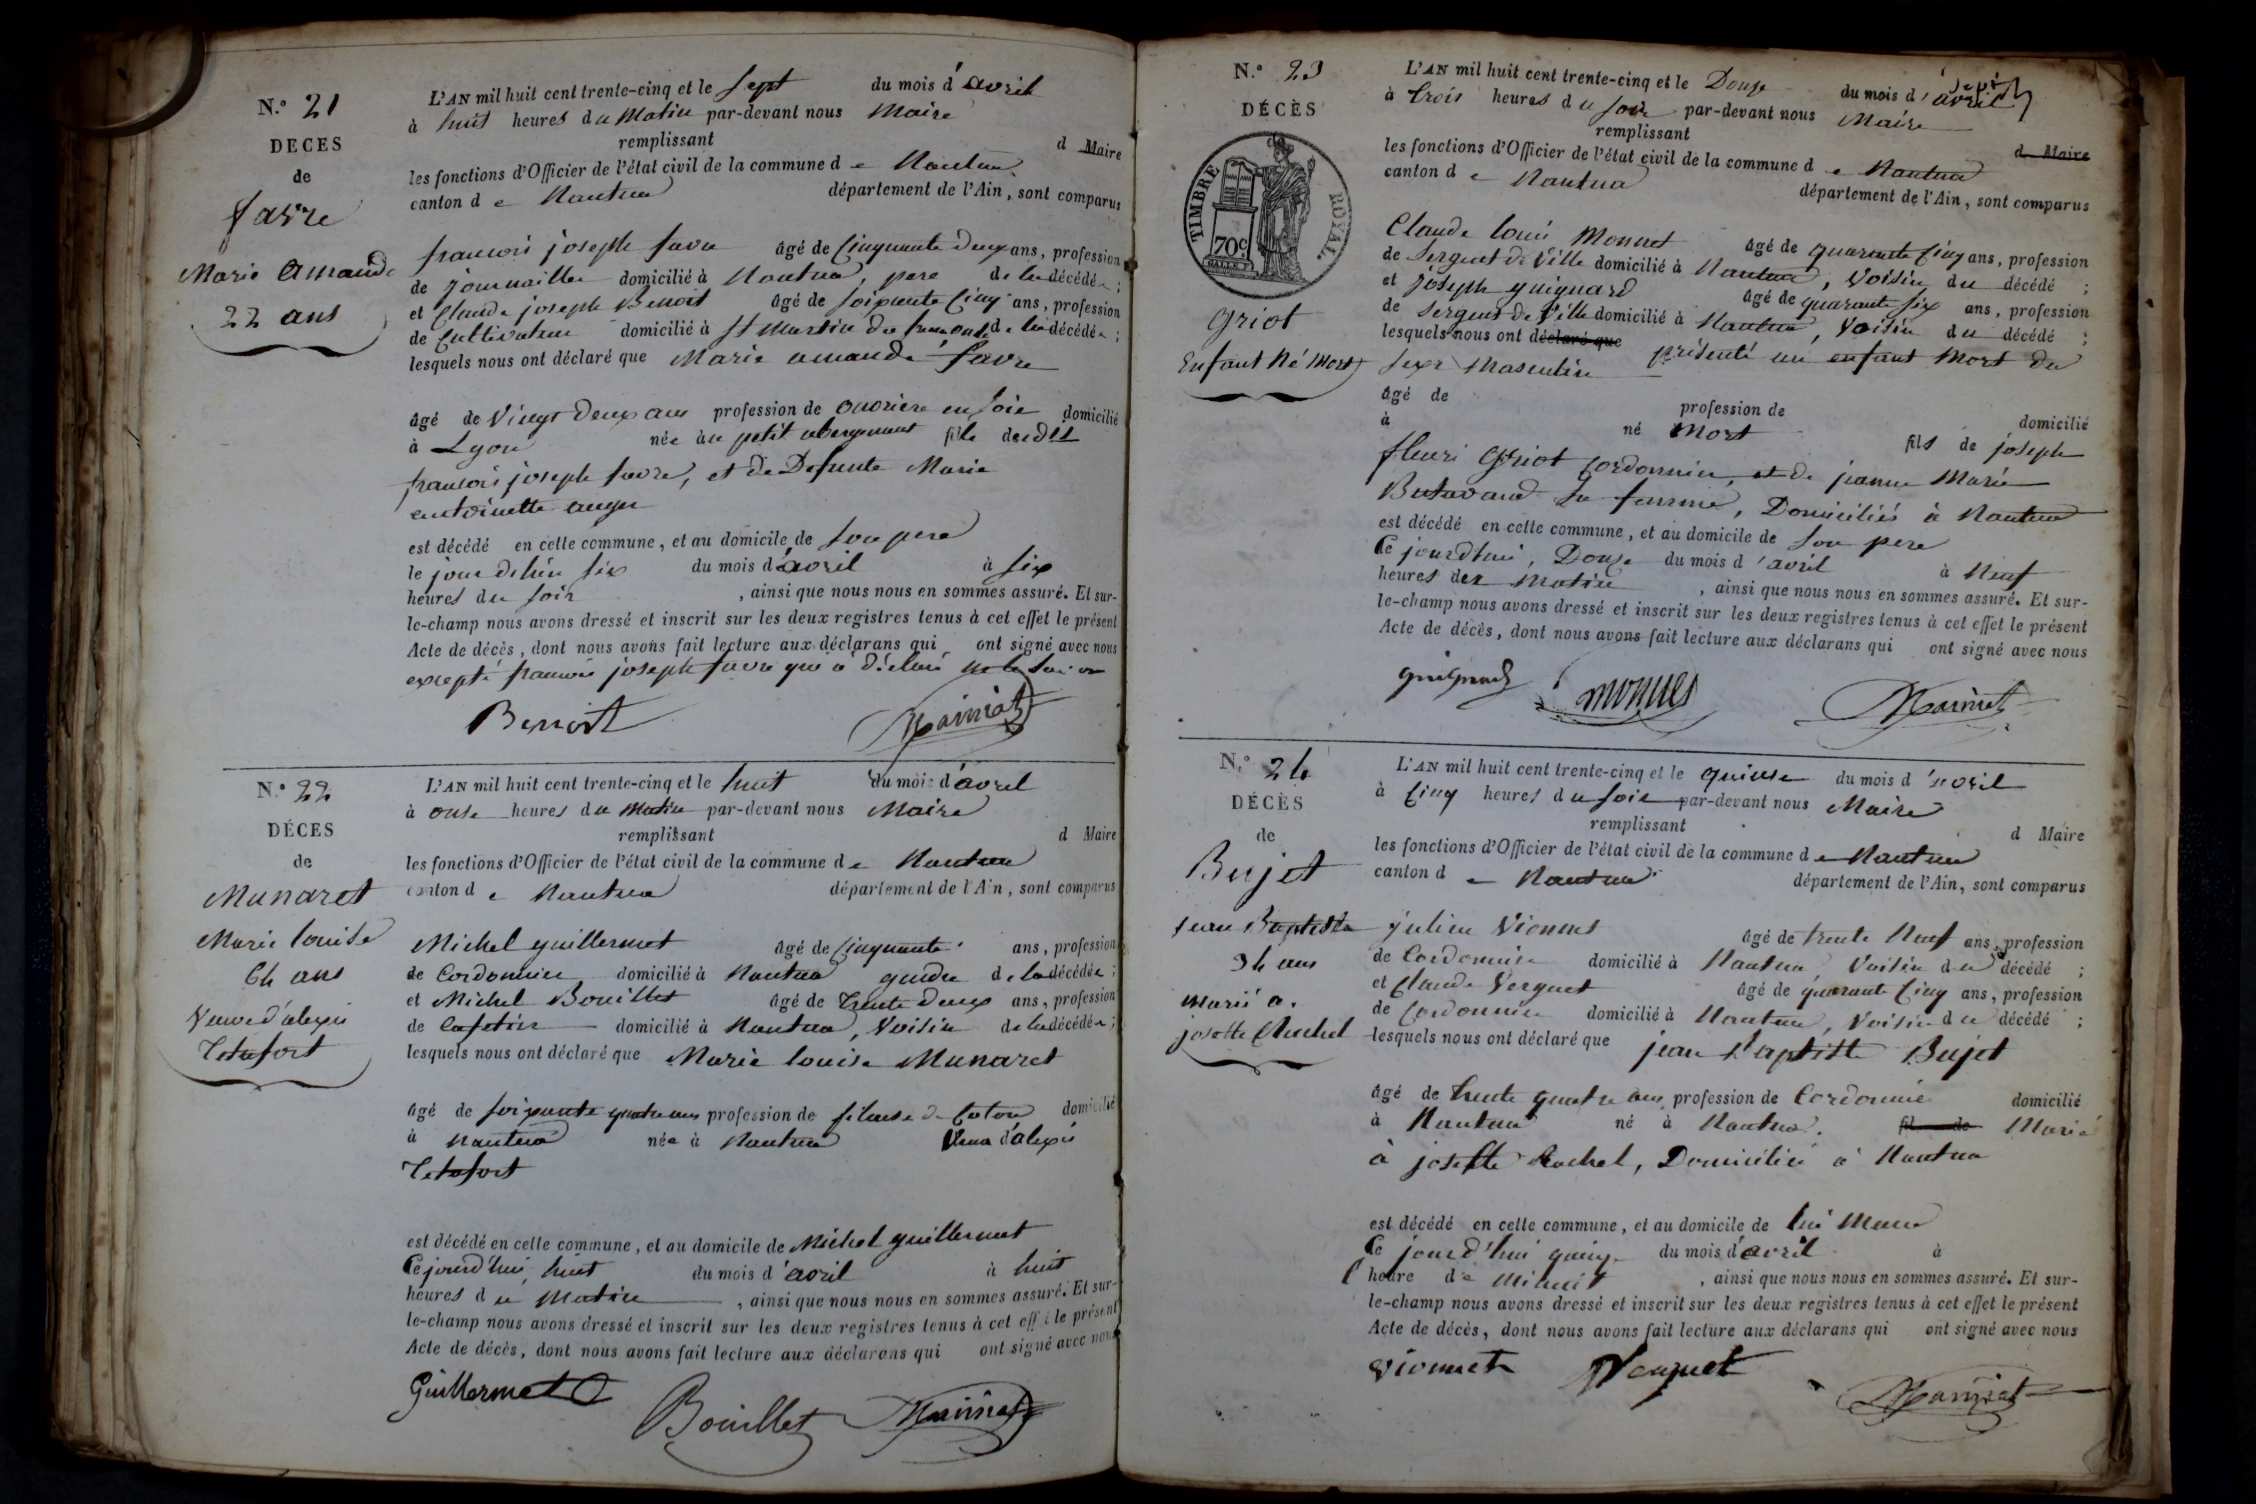 N.° 21
DÉCES
de
favre
Marie Amande
22 ans
L'AN mil huit cent trente-cinq et le Sept du mois d'avril
à huit heures du Matin par-devant nous Maire
remplissant d Maire
les fonctions d'Officier de l'état civil de la commune de Nantua
canton de Nantua département de l'Ain, sont comparus
francois joseph favre âgé de Cinquante deux ans, profession
de journaillier domicilié à Nantua, pere de la décédée ;
et Claude joseph Benoit âgé de soixante Cinq ans, profession
de Cultivateur domicilié à St Martin du de la décédée ;
lesquels nous ont déclaré que Marie amande favre
âgé de Vingt Deux ans profession de ouvriere en soie domicilié
à Lyon née au petit abergement fille dudit
francois joseph favre, et de Defunte Marie
antoinette auger
est décédé en celle commune, et au domicile de son pere
le jour dhier six du mois d'avril à six
heures du soir , ainsi que nous nous en sommes assuré. Et sur-
le-champ nous avons dressé et inscrit sur les deux registres tenus à cet effet le présent
Acte de décès, dont nous avons fait lecture aux déclarans qui ont signé avec nous
excepté francois joseph favre qui a déclaré ne le savoir
Benoit
N.° 22
DÉCES
de
Munaret
Marie louise
64 ans
Veuve d'alexis
Tetafort
L'AN mil huit cent trente-cinq et le huit du mois d'avril
à onse heures du Matin par-devant nous Maire
remplissant d Maire
les fonctions d'Officier de l'état civil de la commune de Nantua
canton de Nantua département de l'Ain, sont comparus
Michel guillermet âgé de Cinquante ans, profession
de Cordonnier domicilié à Nantua gendre de la décédée ;
et Michel Bouillet âgé de Trente Deux ans, profession
de Cafetier domicilié à Nantua, Voisin de la décédée ;
lesquels nous ont déclaré que Marie louise Munaret
âgé de soixante quatre ans profession de fileuse de Coton domicilié
à Nantua née à Nantua Veuve d'alexis
Tetafort
est décédé en celle commune, et au domicile de Michel guillermet
Cejourd'hui huit du mois d'avril à huit
heures du Matin , ainsi que nous nous en sommes assuré. Et sur-
le-champ nous avons dressé et inscrit sur les deux registres tenus à cet effet le présent
Acte de décès, dont nous avons fait lecture aux déclarans qui ont signé avec nous
Guillermet
Bouillet
N.° 23
DÉCÈS
TIMBRE ROYAL.
70c.
griot
Enfant Né Mort
L'AN mil huit cent trente-cinq et le Douze du mois d'avril
à trois heures du soir par-devant nous Maire
remplissant d Maire
les fonctions d'Officier de l'état civil de la commune de Nantua
canton de Nantua département de l'Ain, sont comparus
Claude louis Monnet âgé de quarante Cinq ans, profession
de Sergent de Ville domicilié à Nantua, Voisin du décédé ;
et Joseph guignard âgé de quarante six ans, profession
de sergent de Ville domicilié à Nantua, Voisin du décédé ;
lesquels nous ont déclaré que présenté un enfant Mort du
sexe Masculin
âgé de profession de domicilié
à né Mort fils de joseph
fleuri Griot Cordonnier, et de jeanne Marie
Butavand sa femme, Domiciliés à Nantua
est décédé en celle commune, et au domicile de son pere
Ce jourdhui, Douze du mois d'avril à Neuf
heures du Matin , ainsi que nous nous en sommes assuré. Et sur-
le-champ nous avons dressé et inscrit sur les deux registres tenus à cet effet le présent
Acte de décès, dont nous avons fait lecture aux déclarans qui ont signé avec nous
guignard
N.° 24
DÉCÈS
de
Bujet
jean Baptiste
34 ans
marié a.
josette
L'AN mil huit cent trente-cinq et le quinse du mois d'avril
à Cinq heures du soir par-devant nous Maire
remplissant d Maire
les fonctions d'Officier de l'état civil de la commune de Nantua
canton de Nantua département de l'Ain, sont comparus
julien Vionnet âgé de trente Neuf ans, profession
de Cordonnier domicilié à Nantua, Voisin du décédé ;
et Claude Verguet âgé de quarante Cinq ans, profession
de Cordonnier domicilié à Nantua, Voisin du décédé ;
lesquels nous ont déclaré que jean Baptiste Bujet
âgé de trente quatre ans profession de Cordonnié domicilié
à Nantua né à Nantua. fil de Marié
à josette, Domicilié à Nantua
est décédé en celle commune, et au domicile de lui Meme
Ce jourd'hui quinze du mois d'avril à
heure de Minuit , ainsi que nous nous en sommes assuré. Et sur-
le-champ nous avons dressé et inscrit sur les deux registres tenus à cet effet le présent
Acte de décès, dont nous avons fait lecture aux déclarans qui ont signé avec nous
Vionnet Verguet